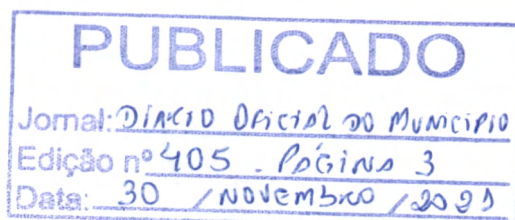 PUBLICADO
Jornal: DIÁRIO OFICIAL DO MUNICÍPIO
Edição nº 405 - PÁGINA 3
Data: 30 / NOVEMBRO /